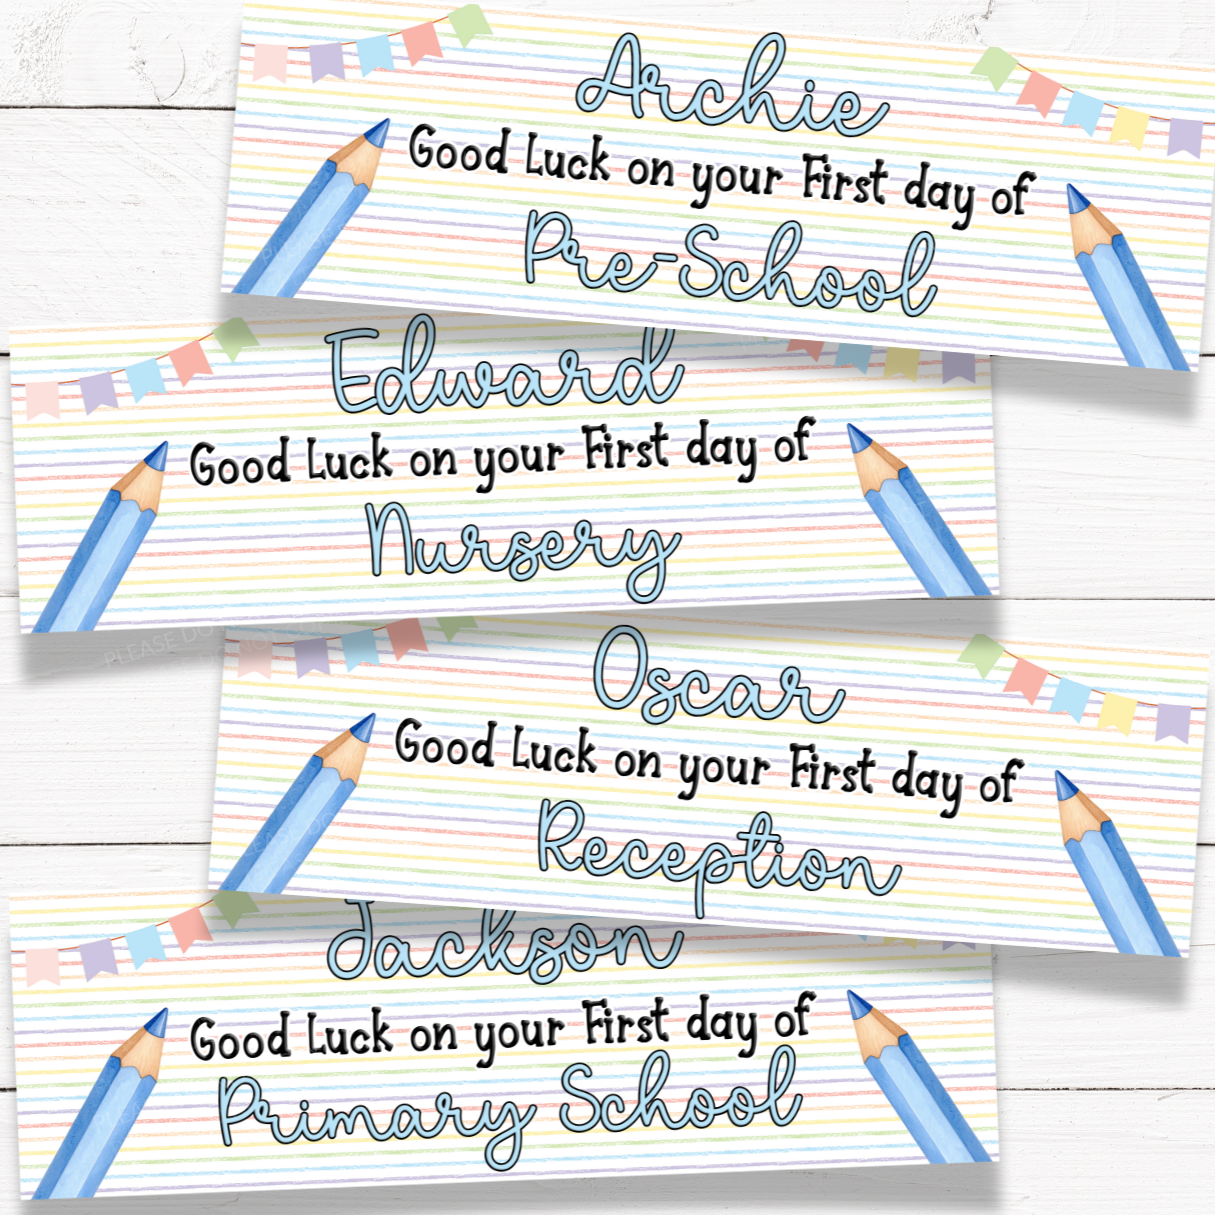 Archie
Good Luck on your First day of
Pre-School
Edward
Good Luck on your First day of
Nursery
PLEASE DO NOT
Oscar
Good Luck on your First day of
Reception
Jackson
Good Luck on your First day of
Primary School